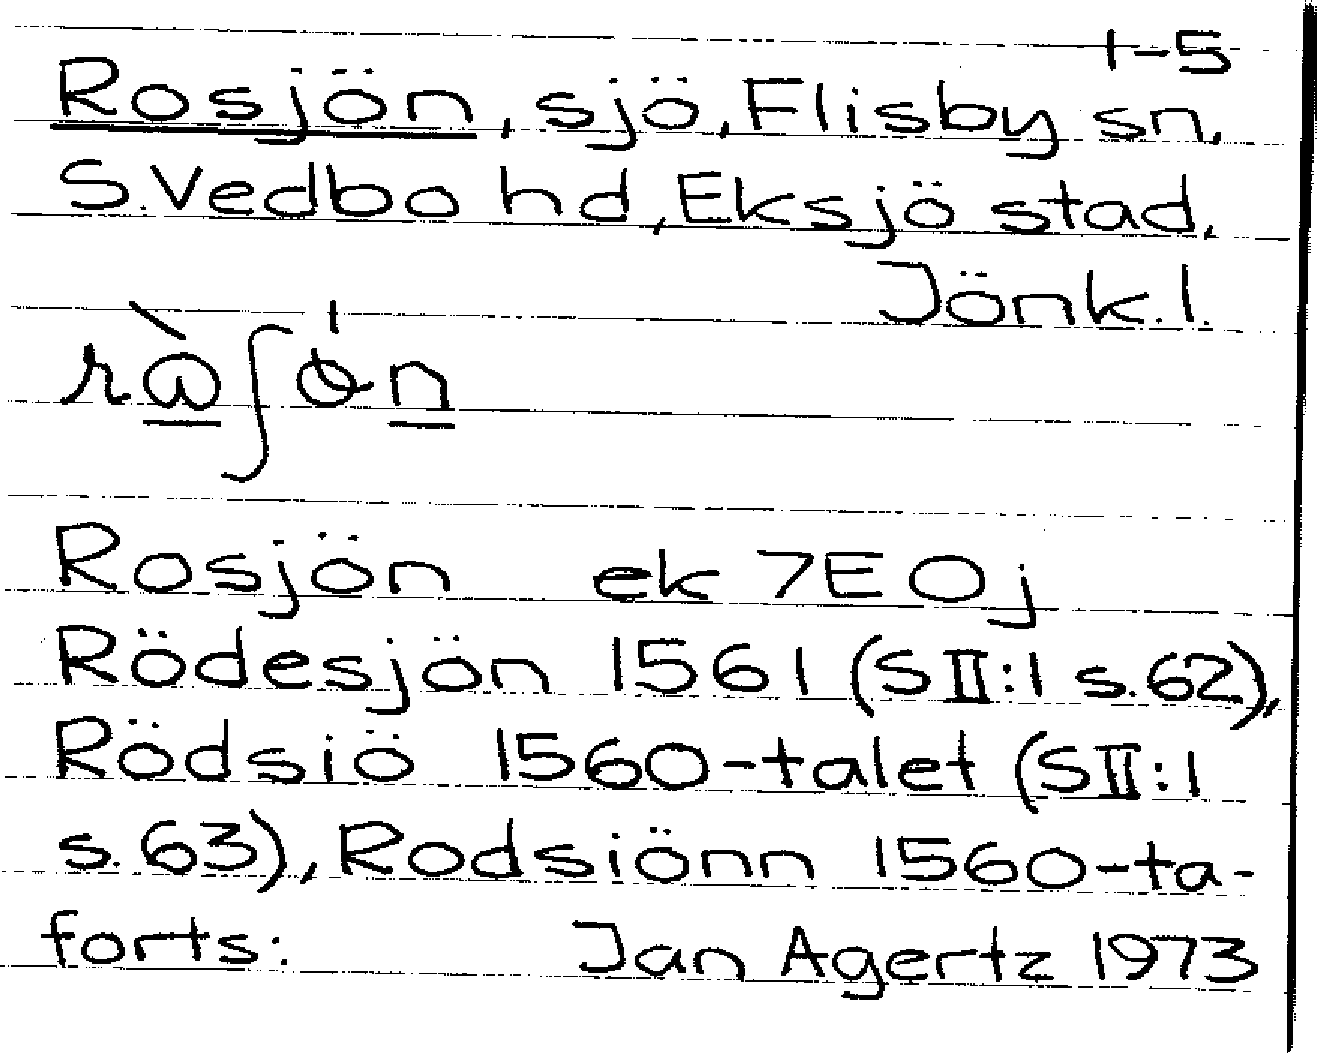 1-5
Rosjön, sjö, Flisby sn,
S. Vedbo hd, Eksjö stad,
Jönk. l.
Rosjön ek 7E0j
Rödesjön 1561 (SII:1 s. 62),
Rödsiö 1560-talet (SII:1
s. 63), Rodsiönn 1560-ta-
forts: Jan Agertz 1973